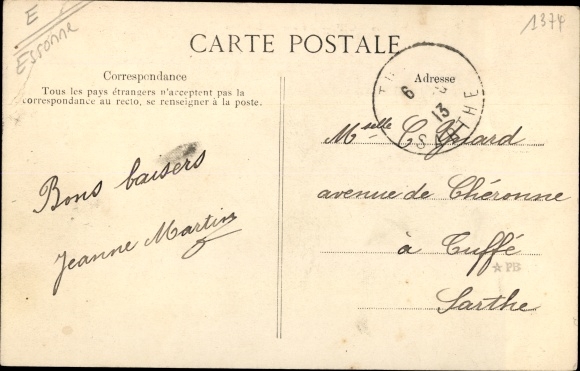 E
Essonne
1374
CARTE POSTALE
Correspondance
Tous les pays étrangers n'acceptent pas la
correspondance au recto, se renseigner à la poste.
Adresse
6
13
SARTHE
Bons baisers
Jeanne Martin
Mselle C.
avenue de Chéronne
à Tuffé
Sarthe
★ PB